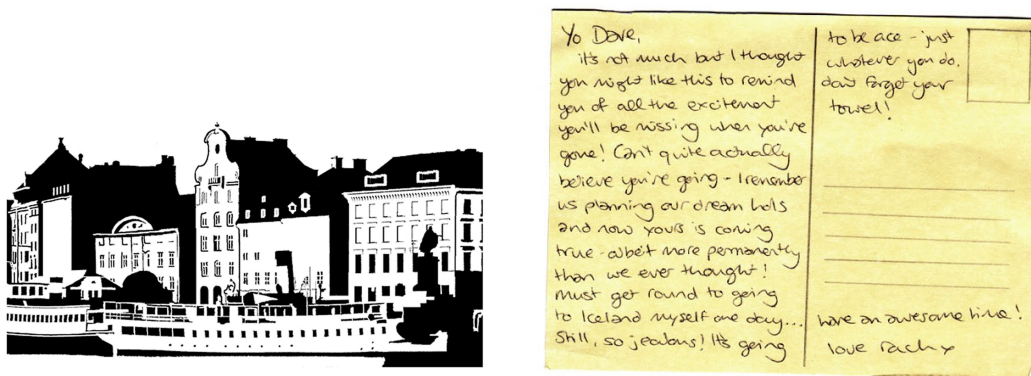 Yo Dave,
it's not much but I thought
you might like this to remind
you of all the excitement
you'll be missing when you're
gone! Can't quite actually
believe you're going - I remember
us planning our dream hols
and now yours is coming
true - albeit more permanently
than we ever thought!
Must get round to going
to Iceland myself one day...
Still, so jealous! It's going
to be ace - just
whatever you do,
don't forget your
towel!
have an awesome time!
love Rach x